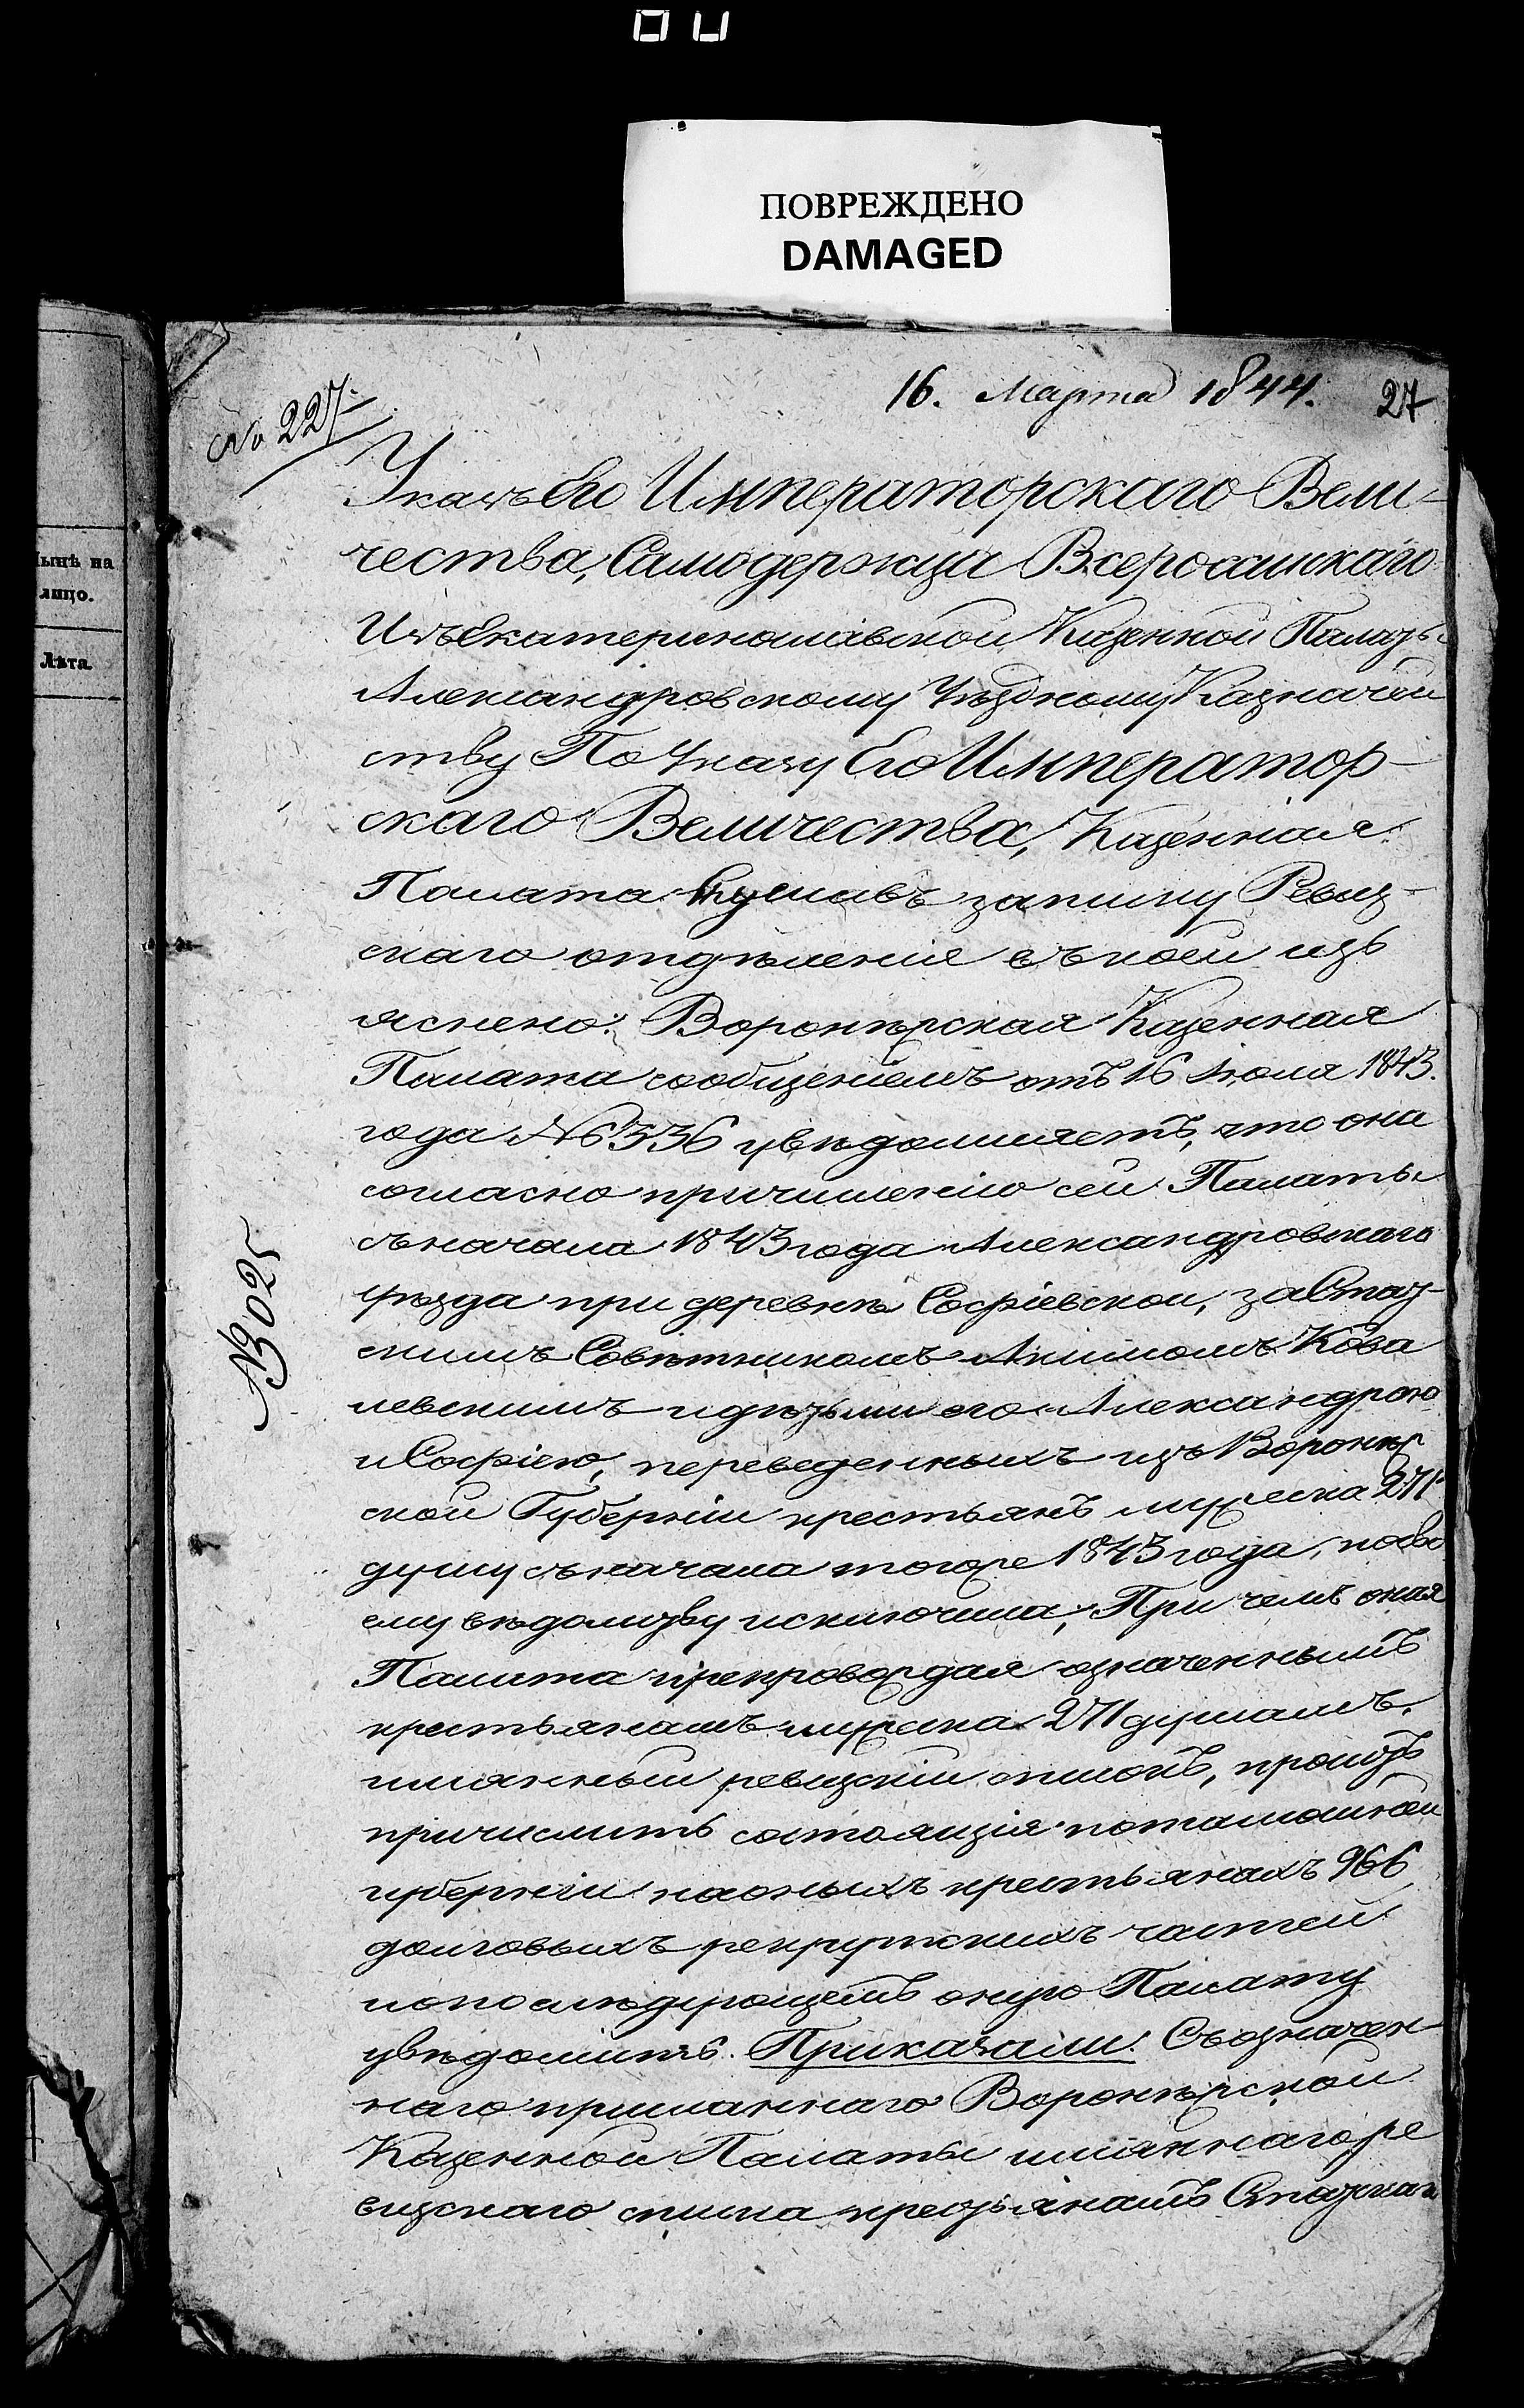 ПОВРЕЖДЕНО
DAMAGED
16. Марта 1844. 27
№ 227.
Указъ Его Императорскаго Вели-
чества, Самодержца Всероссийскаго
Изъ Екатеринославской Казенной Палаты
Александровскому Уѣздному Казначей
ству По Указу Его Император-
скаго Величества, Казенная
Палата слушавъ записку Ревиз-
скаго отдѣленія въ коей изъ
яснено: Воронежская Казенная
Палата сообщеніемъ отъ 16 Іюля 1843.
года № 6336 увѣдомляетъ, что она
согласно причисленію сей Палаты
съ начала 1843 года Александровскаго
уѣзда при деревнѣ Софіевской, за Стат-
скимъ Совѣтникомъ Акимомъ Кова
левскимъ и дѣтьми его Александрою
и Софіею, переведенныхъ изъ Воронеж
ской Губерніи крестьянъ мужеска 271
душу съ начала тогоже 1843 года, по сво
ему вѣдомству исключила; При чемъ оная
Палата препровождая означеннымъ
крестьянамъ мужеска 271 душамъ.
имянный ревизскій списокъ, проситъ
причислить состоящія по тамошней
губерніи на оныхъ крестьянахъ 966
долговыхъ рекрутскихъ частей
и о послѣдующемъ оную Палату
увѣдомить. Приказали: Съ означен-
наго присланнаго Воронежской
Казенной Палаты имяннаго ре
визскаго списка крестьянамъ Статскаго
№ 3025
Нынѣ на
лицо.
Лѣта.